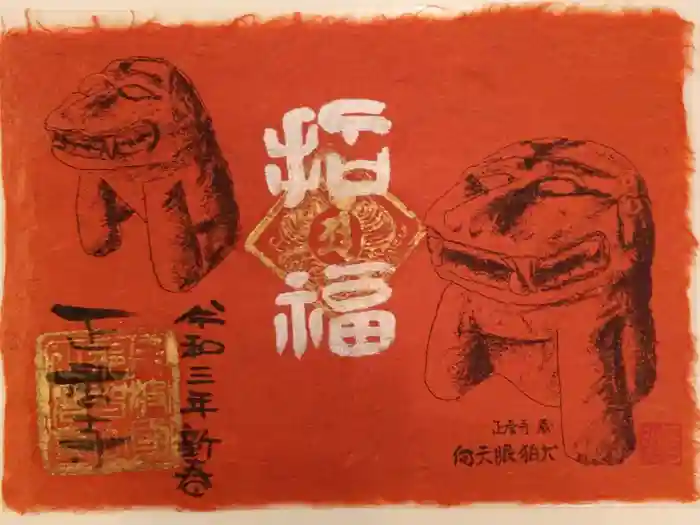 招福
令和三年新春
正雲寺
正雲寺 蔵
向天眼狛犬